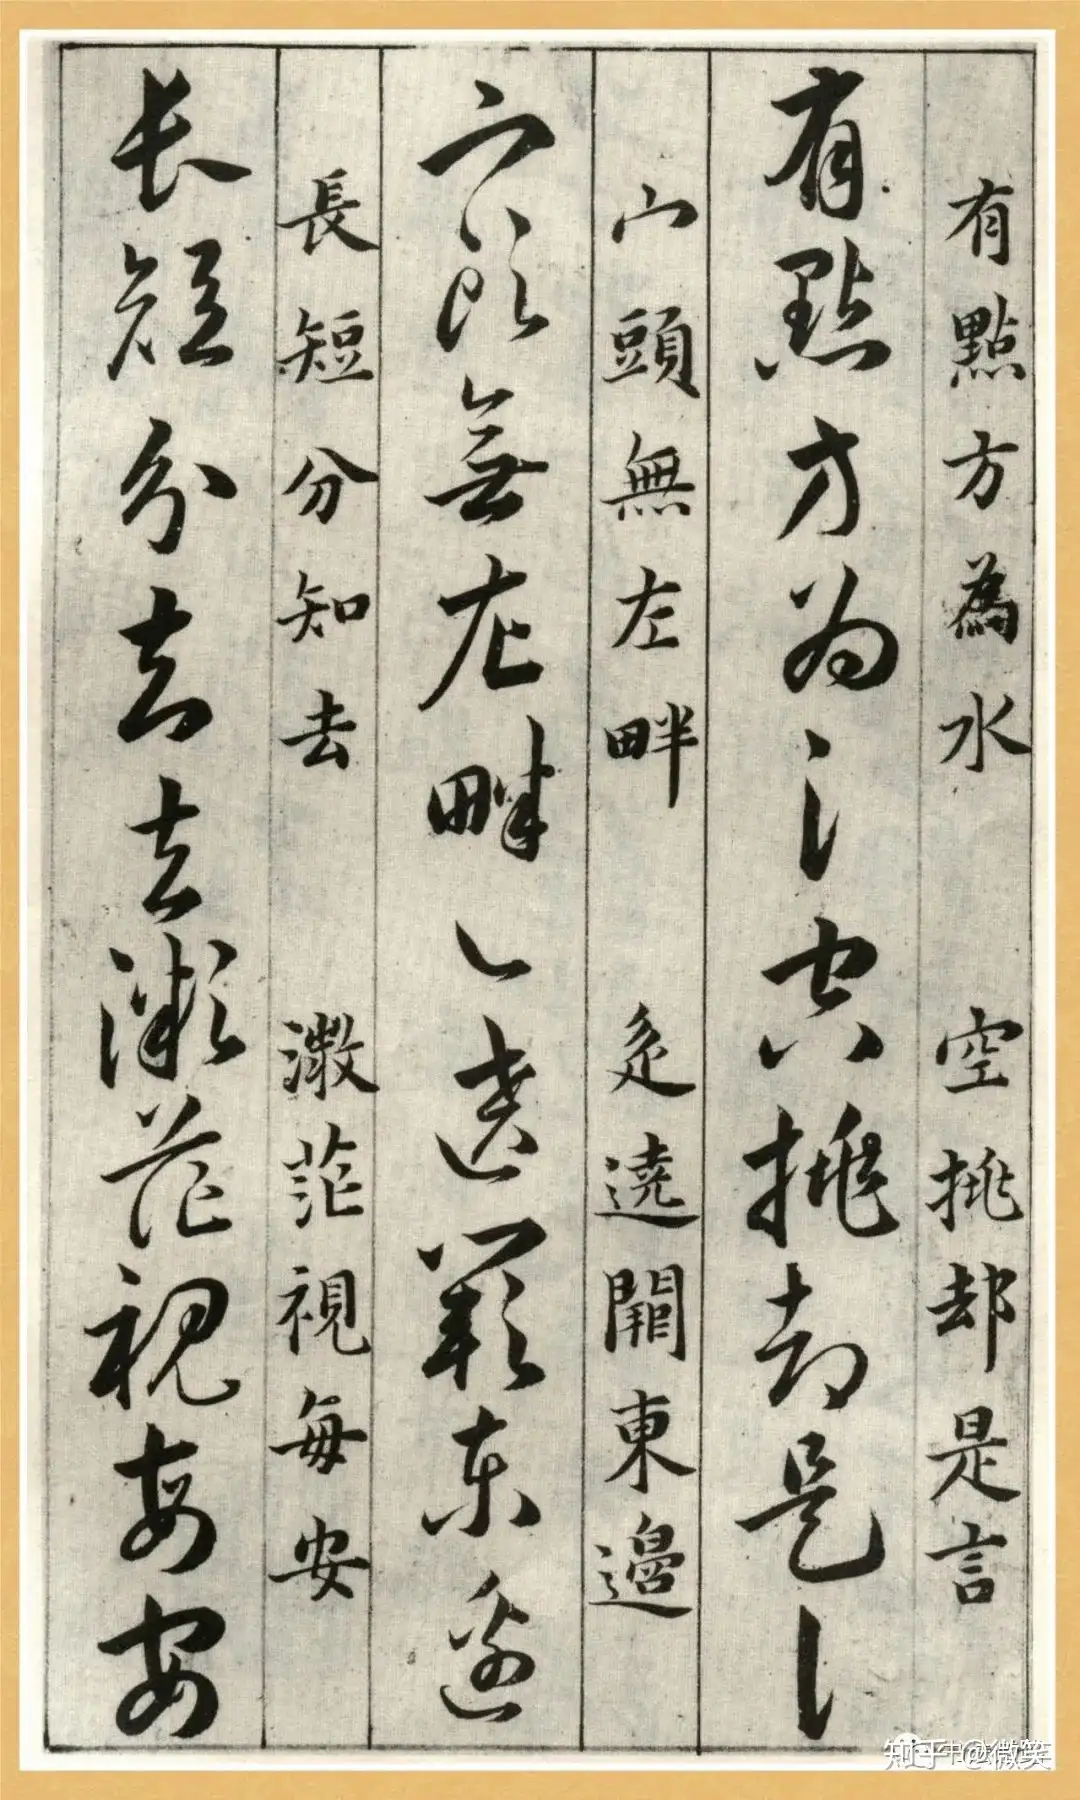 有點方為水　空挑却是言
有點方為氵空挑却是讠
宀頭無左畔　辵遶闕東邊
宀頭無左畔辶遶闕東邊
長短分知去　溦茫視每安
長短分知去溦茫視每安
知乎 @微笑